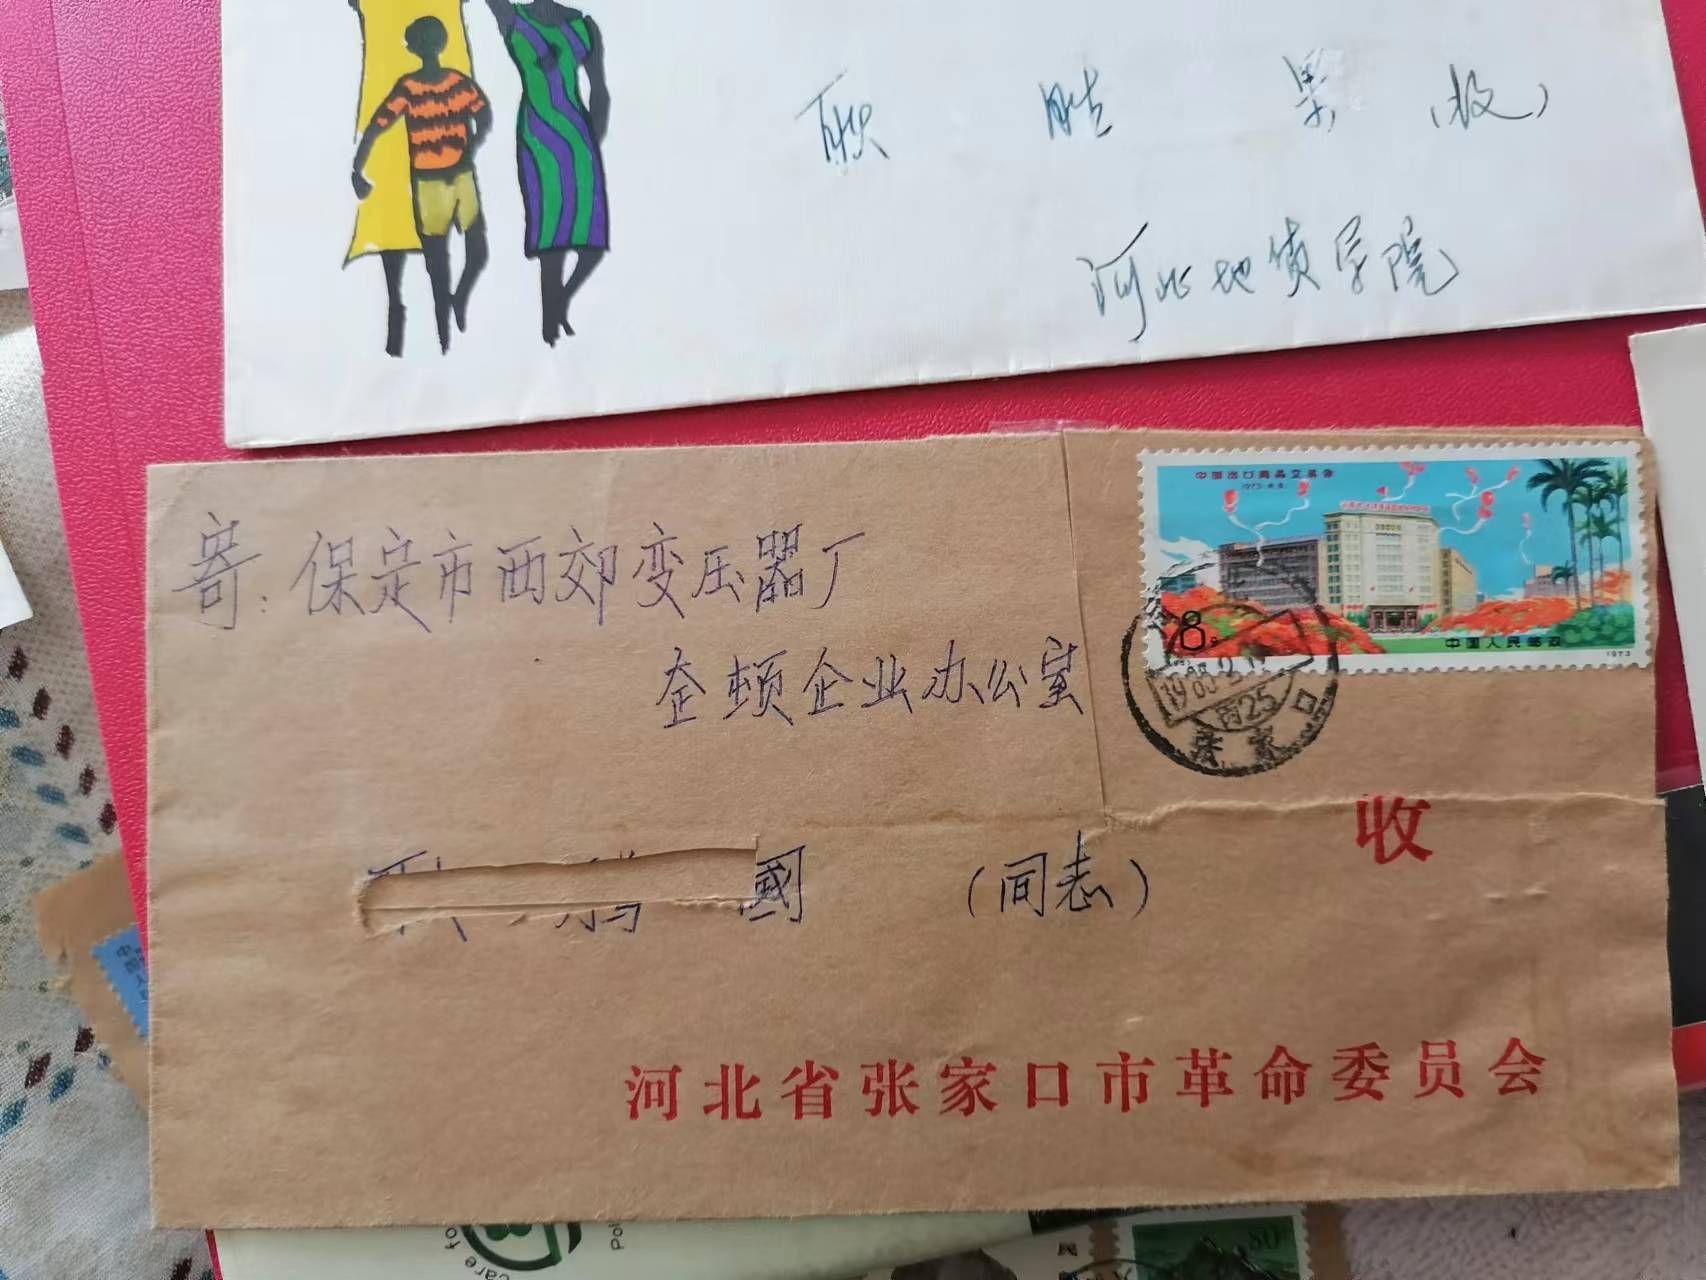 耿 胜 果 (收)
河北地质学院
中国出口商品交易会
8
中国人民邮政
1973
寄:保定市西郊变压器厂
企业办公室
25
张家口
收
國 (同志)
河北省张家口市革命委员会
80